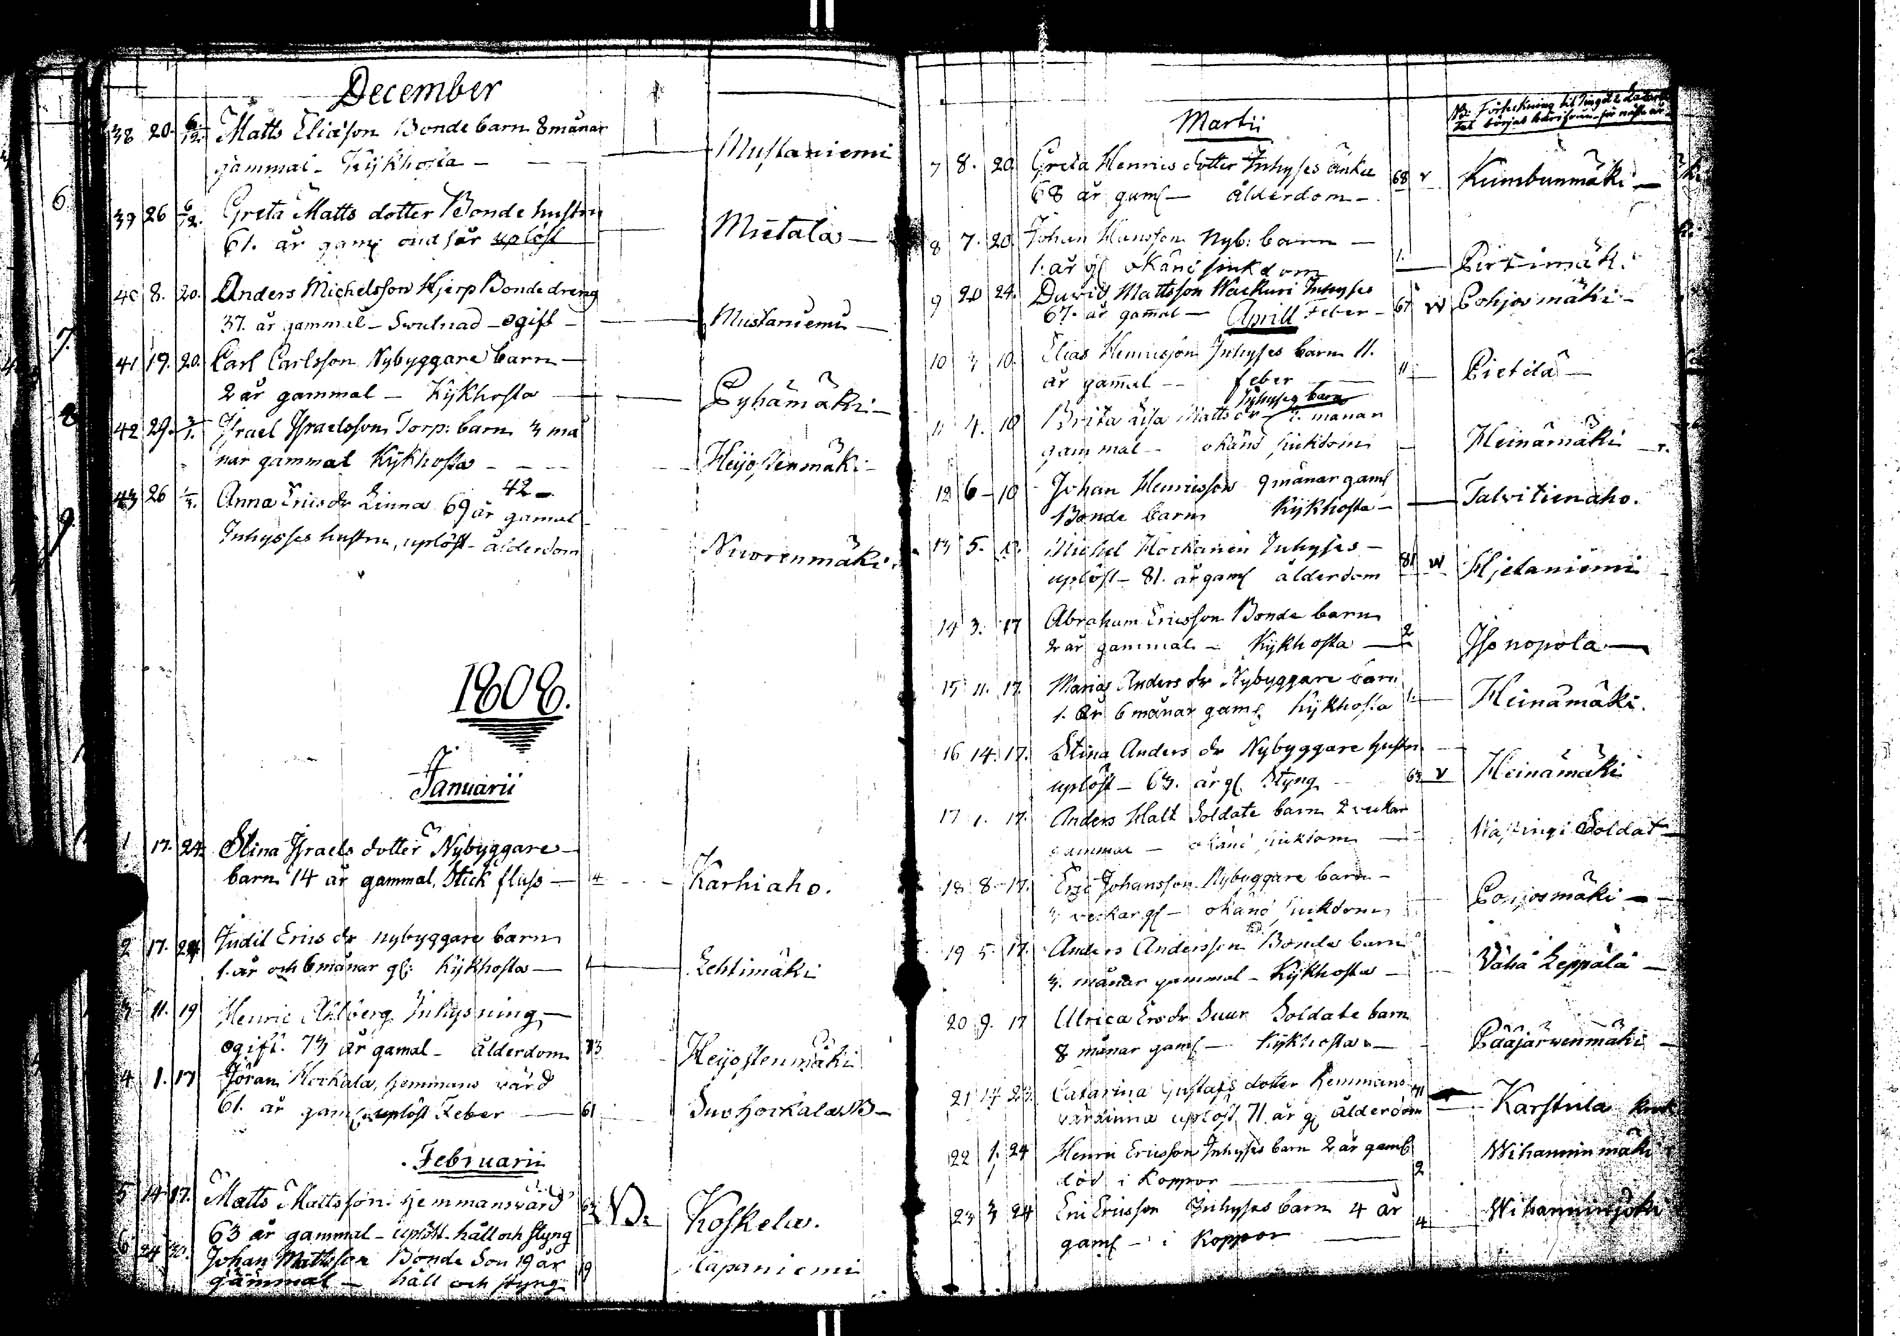 December
38 20. 6/12. Matts Eliæson Bonde barn 8 månar
gammal - Kijkhosta - Mustaniemi
39 26 6/12. Greta Matts dotter Bonde hustru
61. år gaml uplöst Mutala
40 8. 20. Anders Michelsson Hjerp Bonde dreng
37. år gammal - Swulnad - ogift - Mustaniemi
41 19. 20. Carl Carlsson Nybyggare barn
2 år gammal - Kijkhosta Pyhämäki
42 29. 3/1. Israel Israelsson Torp: barn 3 må
nar gammal Kijkhosta - Heijostenmäki
42
43 26 1/3. Anna Erics dr Linna 69 år gamal
Inhysses hustru, uplöst - ålderdom Nuorenmäki
1808.
Januarii
1 17. 24. Stina Israels dotter Nybyggare
barn 14 år gammal, Stick fluss - 14 Karhiaho.
2 17. 24 Judit Erics dr nybyggare barn
1. år och 6 månar gl: Kijkhosta - 1 Lehtimäki
3 11. 19 Henric Ahlberg Inhysning
ogift. 73 år gamal - ålderdom 73 Heijostenmäki
4 1. 17 Jöran Horkala, hemmans värd
61. år gaml uplöst Feber 61
Februarii
5 14 17. Matts Mattsson hemmansvärd
63 år gammal - uplöst. håll och styng 63 V. Koskela.
6 24 30. Johan Mattsson Bonde Son 19 år
gammal - håll och styng 19 Hapaniemi
Martii
7 8. 20. Greta Henrics dotter Inhyses änka
68 år gaml - ålderdom - 68 v Kumbunmäki
8 7. 20. Johan Hansson Nyb: barn
1. år gl okänd sjukdom 1. Pirtimäki
9 20 24. David Mattsson Inhyses
67. år gamal - Feber - 67 W Pohjosmäki
Aprill
10 3 10. Elias Henricsson Inhyses barn 11.
år gammal - feber 11 Pietilä
Inhyses barn
11 4. 10 Brita Lisa Matts dr månar
gammal - okänd sjukdom Heinämäki
12 6 - 10 Johan Henricsson 9 månar gaml
Bonde barn Kijkhosta - Talvitienaho.
13 5. Michel Horkainen Inhyses -
uplöst - 81. år gaml ålderdom 81 W Hjetaniemi
14 3. 17 Abraham Ericsson Bonde barn
2 år gammal - Kijkhosta - 2 Isonopola
15 11. 17. Maria Anders dr Nybyggare barn
1. år 6 månar gaml Kijkhosta 1. Heinämäki.
16 14. 17. Stina Anders dr Nybyggare hustru
uplöst - 63. år gl. Styng 63 v Heinämäki
17 1. 17. Anders Halt Soldate barn 2 veckar
gammal - okänd sjukdom Soldat
18 8 - 17. Eric Johansson Nybyggare barn -
3 veckar gl - okänd sjukdom Pohjosmäki
19 5. 17. Anders Andersson Bonde barn
3. månar gammal - Kijkhosta - Vähä Leppälä
20 9. 17 Ulrica Ers dr Suur Soldate barn
8 månar gaml - Kijkhosta - Pääjärvenmäki
21 14 23. Catarina Gustafs dotter hemmans
värdinna uplöst, 71 år gl ålderdom 71 Karstula
22 1. 24 Henric Ericsson Inhyses barn 2 år gaml
död i Koppor 2 Wihanninmäki
23 3 24 Eric Ericsson Inhyses barn 4 år
gaml - i Koppor 4 Wihanninjoki